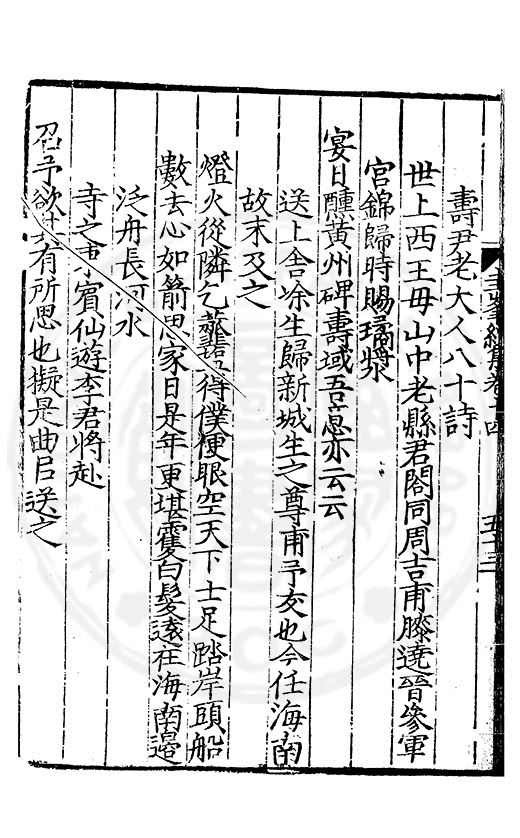 壽尹老大人八十詩
世上西王毋山中老縣君閤同周吉甫膝遶晉參軍
宮錦歸時賜瓊漿
宴日醺黃州碑壽域吾意亦云云
送上舍徐生歸新城生之尊甫予友也今任海南
故末及之
燈火從隣乞虀鹽得僕便眼空天下士足踏岸頭船
數去心如箭思家日是年更堪霻白髮遠在海南邉
泛舟長河水
寺之東賓仙遊李君將赴
召予欲其有所思也擬是曲㠯送之